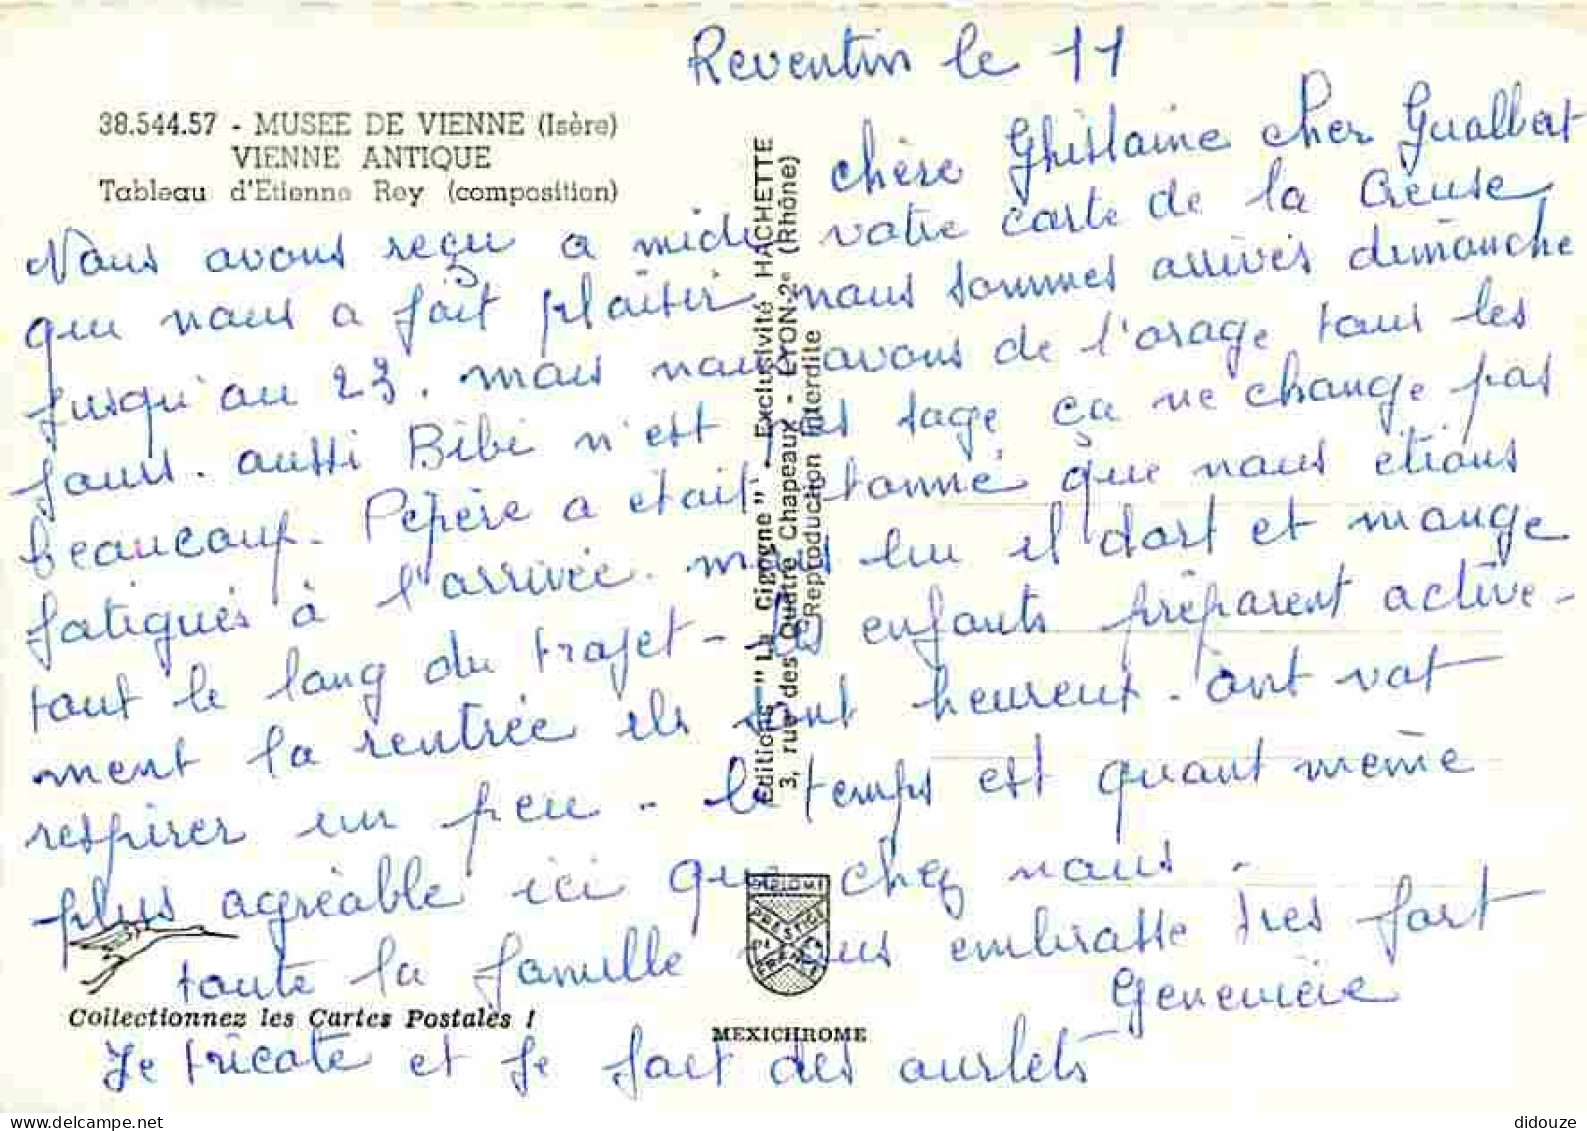 Reventin le 11
38.544.57 - MUSEE DE VIENNE (Isère)
VIENNE ANTIQUE
Tableau d'Etienne Rey (composition)
chère Ghislaine cher Gualbert
Nous avons reçu a midi votre carte de la Creuse,
qui nous a fait plaisir nous sommes arrivés dimanche
jusqu'au 23. mais nous avons de l'orage tous les
jours. aussi Bibi n'est pas sage ça ne change pas
beaucoup. Pépère a était étonné que nous étions
fatigués à l'arrivée. mais lui il dort et mange
tout le long du trajet - les enfants préparent active-
ment la rentrée ils sont heureux. ont vat
respirer un peu - le temps est quant même
plus agréable ici que chez nous.
toute la famille vous embrasse très fort
Geneviève
Je tricote et je fait des ourlets
Editions "La Cigogne" - Exclusivité HACHETTE
3, rue des Quatre Chapeaux - LYON-2e (Rhône)
Reproduction Interdite
Collectionnez les Cartes Postales !
DIPLOME
PRESTIGE
DE LA
FRANCE
MEXICHROME
didouze